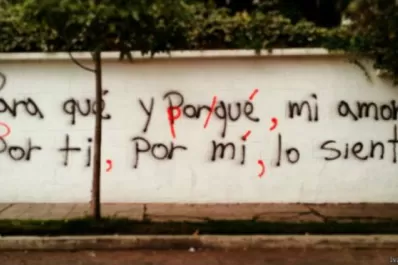 Para qué y por qué, mi amor
Por ti, por mí, lo sient